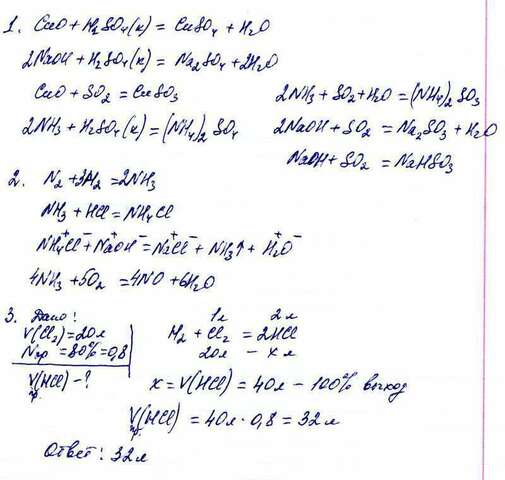 1. CuO + H₂SO₄(к) = CuSO₄ + H₂O
2NaOH + H₂SO₄(к) = Na₂SO₄ + 2H₂O
CuO + SO₂ = CuSO₃
2NH₃ + SO₂ + H₂O = (NH₄)₂SO₃
2NH₃ + H₂SO₄(к) = (NH₄)₂SO₄
2NaOH + SO₂ = Na₂SO₃ + H₂O
NaOH + SO₂ = NaHSO₃
2. N₂ + 3H₂ = 2NH₃
NH₃ + HCl = NH₄Cl
NH₄⁺Cl⁻ + Na⁺OH⁻ = Na⁺Cl⁻ + NH₃↑ + H₂⁺O⁻
4NH₃ + 5O₂ = 4NO + 6H₂O
3. Дано:
V(Cl₂) = 20л
Nпр = 80% = 0,8
V(HCl) - ?
пр.
1л 2л
H₂ + Cl₂ = 2HCl
20л – x л
x = V(HCl) = 40л – 100% выход
V(HCl) = 40л · 0,8 = 32л
пр.
Ответ: 32л